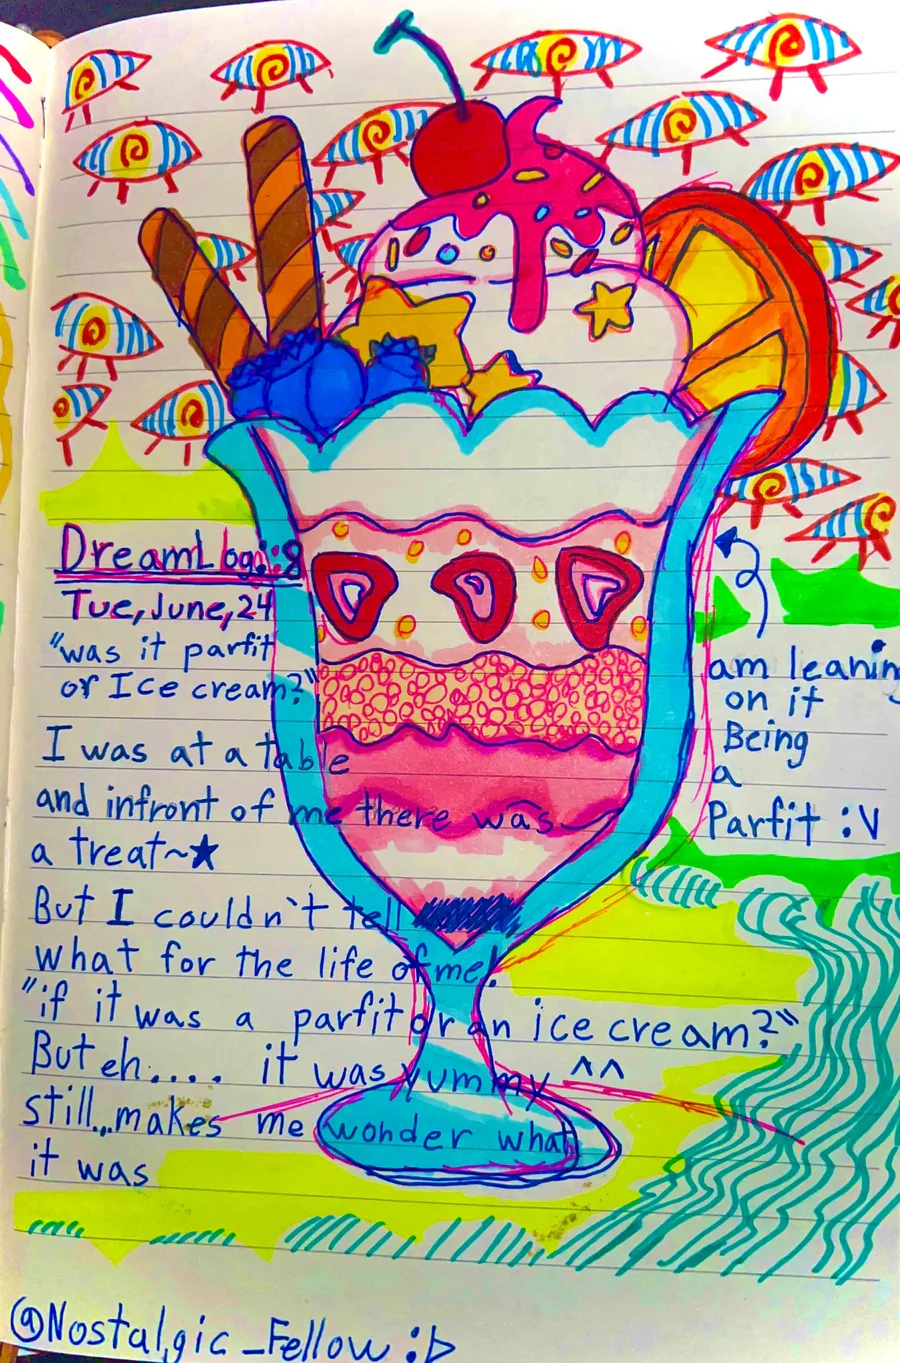 DreamLog::8
Tue,June,24
"was it parfit
or Ice cream?"
I was at a table
and infront of me there was
a treat~★
But I couldn't tell
what for the life of me!
"if it was a parfit or an ice cream?"
But eh.... it was yummy ^^
still...makes me wonder what
it was
am leanin
on it
Being
a
Parfit :V
@Nostalgic_Fellow :b